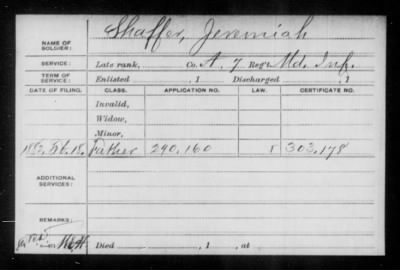 NAME OF SOLDIER: Shaffer, Jeremiah
SERVICE: Late rank, Co. A, 7 Reg't Md. Inf.
TERM OF SERVICE: Enlisted , 1 Discharged , 1
DATE OF FILING. CLASS. APPLICATION NO. LAW. CERTIFICATE NO.
Invalid,
Widow,
Minor,
Father 290,160 303,178
ADDITIONAL SERVICES:
REMARKS:
Died , 1 , at